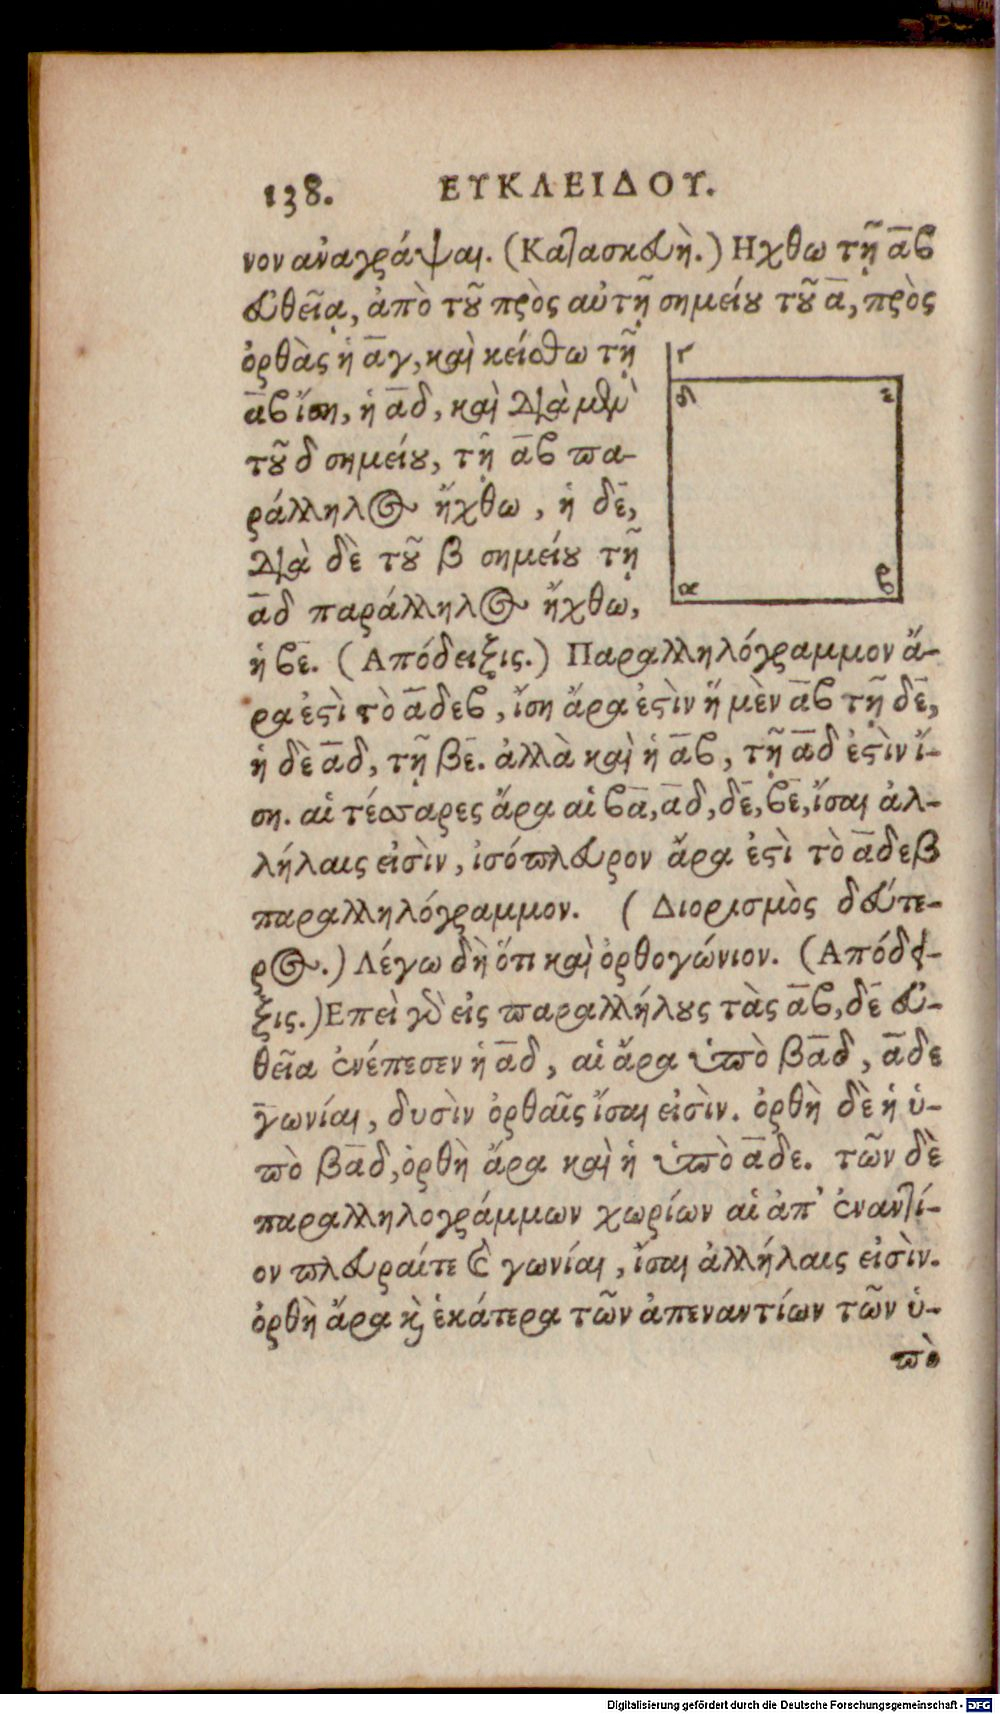 138. ΕΥΚΛΕΙΔΟΥ.
νον ἀναγράψαι. (Κατασκευὴ.) Ηχθω τῇ α̅β
εὐθείᾳ, ἀπὸ τοῦ πρὸς αὐτῇ σημείου τοῦ α̅, πρὸς
ὀρθὰς ἡ α̅γ, καὶ κείσθω τῇ
α̅β ἴση, ἡ α̅δ, καὶ διὰ μὲν
τοῦ δ σημείου, τῇ α̅β πα-
ράλληλος ἤχθω, ἡ δε̅,
διὰ δὲ τοῦ β σημείου τῇ
α̅δ παράλληλος ἤχθω,
ἡ βε̅. (Απόδειξις.) Παραλληλόγραμμον ἄ-
ρα ἐστὶ τὸ α̅δεβ, ἴση ἄρα ἐστὶν ἥ μὲν α̅β τῇ δε̅,
ἡ δὲ α̅δ, τῇ βε̅. ἀλλὰ καὶ ἡ α̅β, τῇ α̅δ ἐστὶν ἴ-
ση. αἱ τέσσαρες ἄρα αἱ βα̅, α̅δ, δε̅, βε̅, ἴσαι ἀλ-
λήλαις εἰσὶν, ἰσόπλευρον ἄρα ἐστὶ τὸ α̅δεβ
παραλληλόγραμμον. (Διορισμὸς δεύτε-
ρος.) Λέγω δὴ ὅτι καὶ ὀρθογώνιον. (Απόδει-
ξις.) Επεὶ γὰρ εἰς παραλλήλους τὰς α̅β, δε̅ εὐ-
θεῖα ἐνέπεσεν ἡ α̅δ, αἱ ἄρα ὑπὸ βα̅δ, α̅δε
γωνίαι, δυσὶν ὀρθαῖς ἴσαι εἰσὶν. ὀρθὴ δὲ ἡ ὑ-
πὸ βα̅δ, ὀρθὴ ἄρα καὶ ἡ ὑπὸ α̅δε. τῶν δὲ
παραλληλογράμμων χωρίων αἱ ἀπ' ἐναντί-
ον πλευραίτε καὶ γωνίαι, ἴσαι ἀλλήλαις εἰσὶν.
ὀρθὴ ἄρα καὶ ἑκάτερα τῶν ἀπεναντίων τῶν ὑ-
πὸ
γ
δ ε
α β
Digitalisierung gefördert durch die Deutsche Forschungsgemeinschaft - DFG